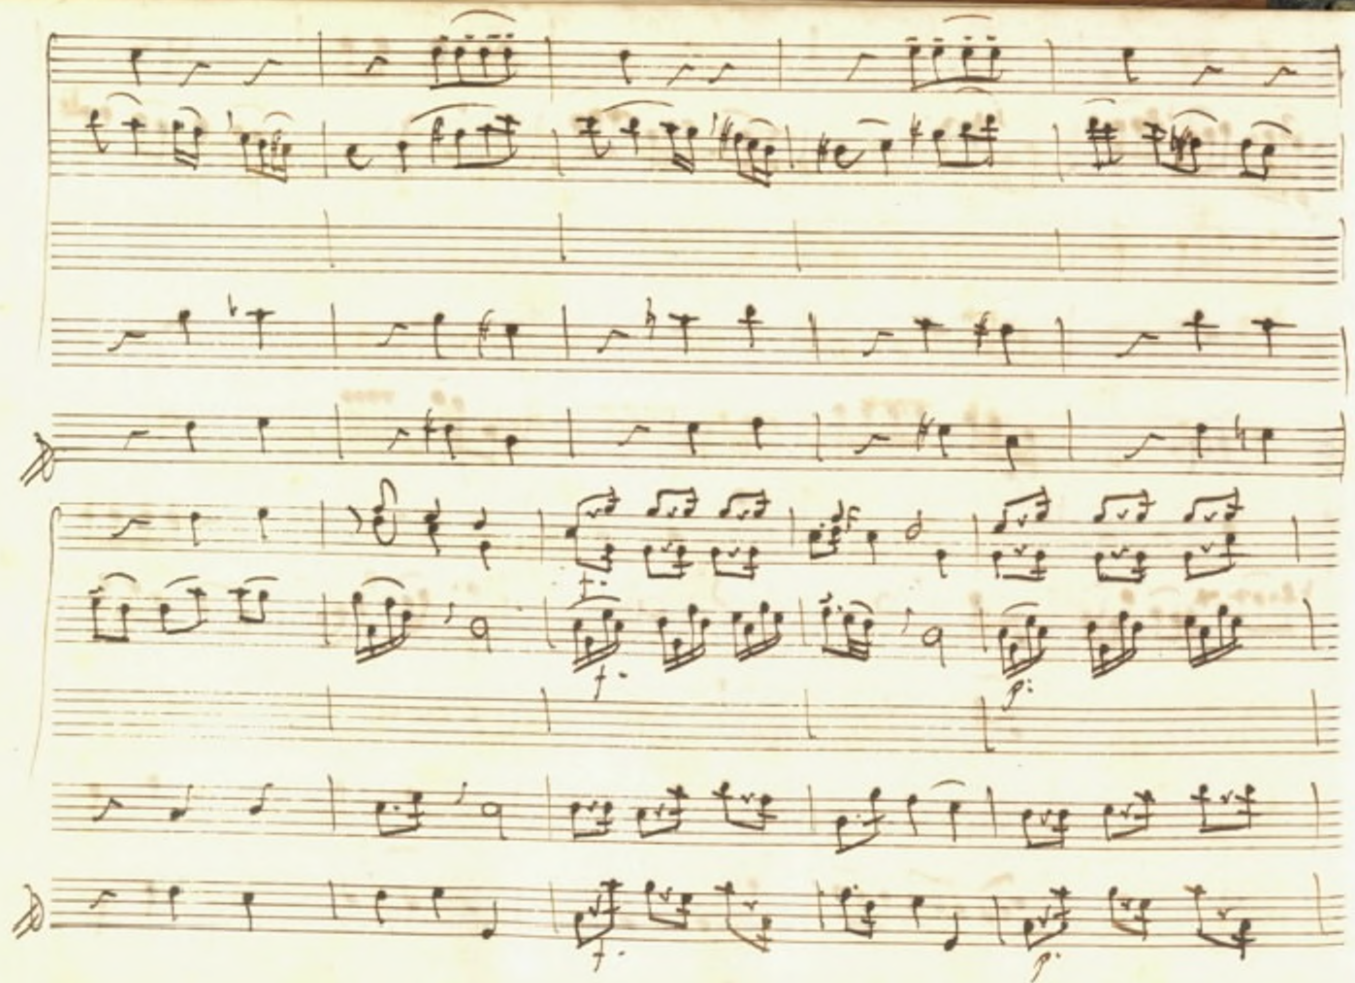 f.
f.
p:
f.
p.